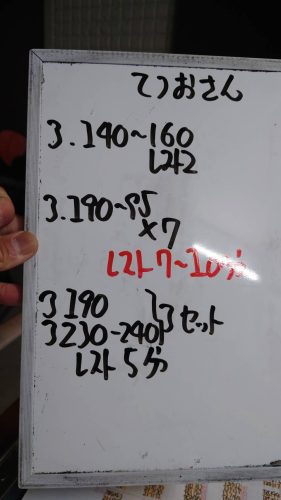 てつおさん
3.140~160
レスト2
3.190~95
×7
レスト7~10分
3190
3230-240 }3セット
レスト5分